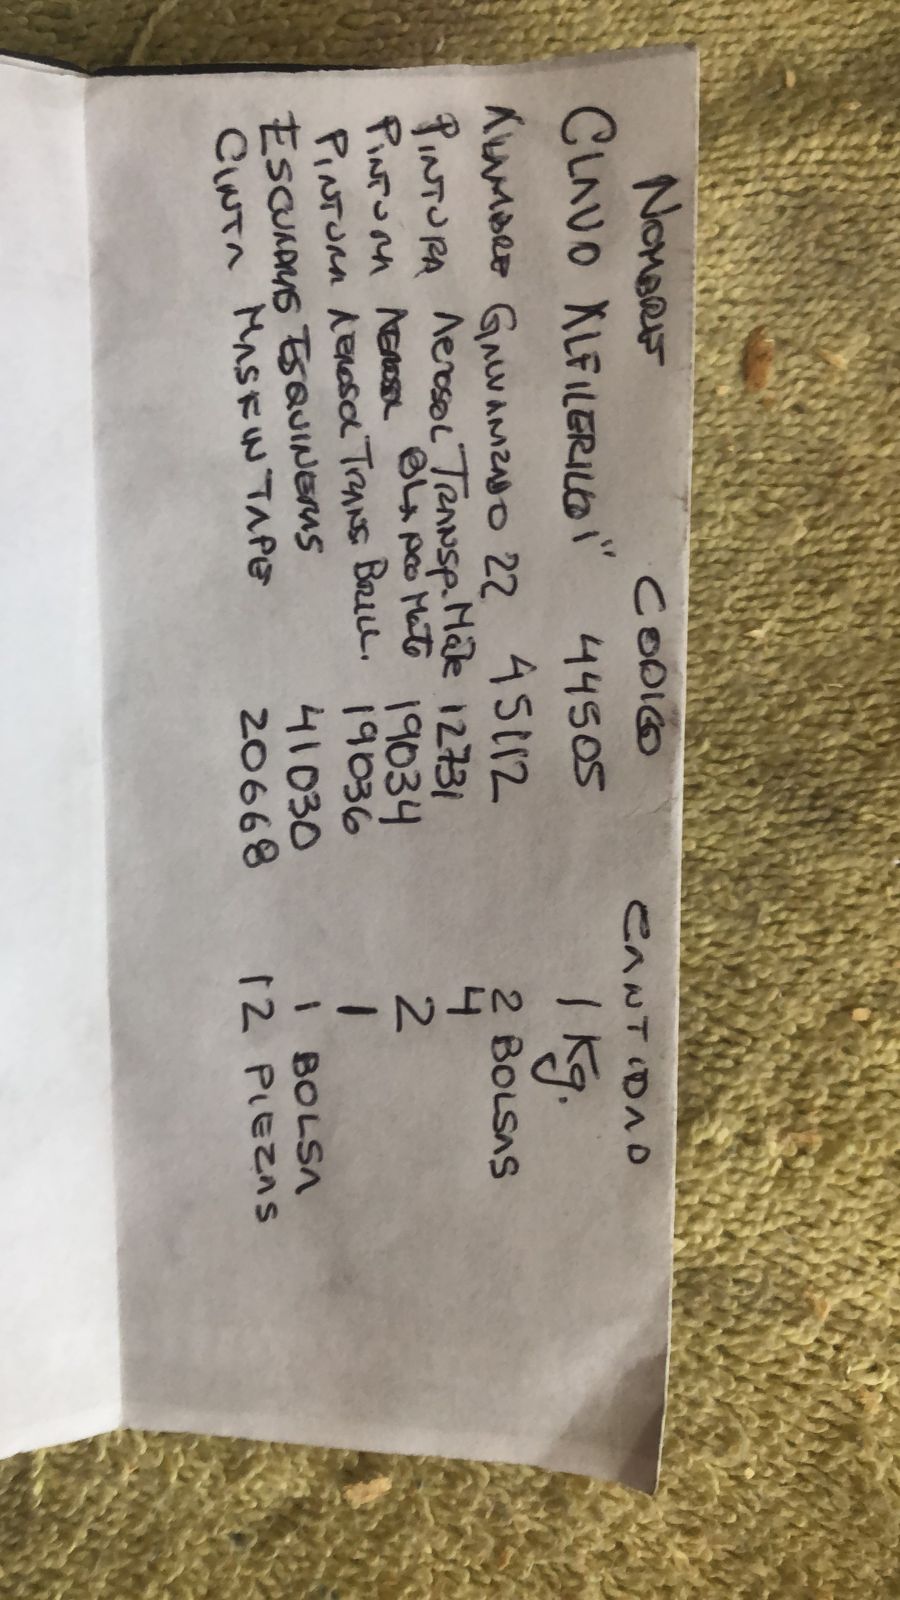 NOMBRE CODIGO CANTIDAD
CLAVO ALFILERILLO 1" 44505 1 Kg.
ALAMBRE GALVANIZADO 22 45112 2 BOLSAS
PINTURA AEROSOL TRANSP. Mate 12731 4
PINTURA AEROSOL BLANCO Mate 19034 2
PINTURA AEROSOL TRANS BRILL. 19036 1
ESCUADRAS ESQUINERAS 41030 1 BOLSA
CINTA MASKIN TAPE 20668 12 PIEZAS